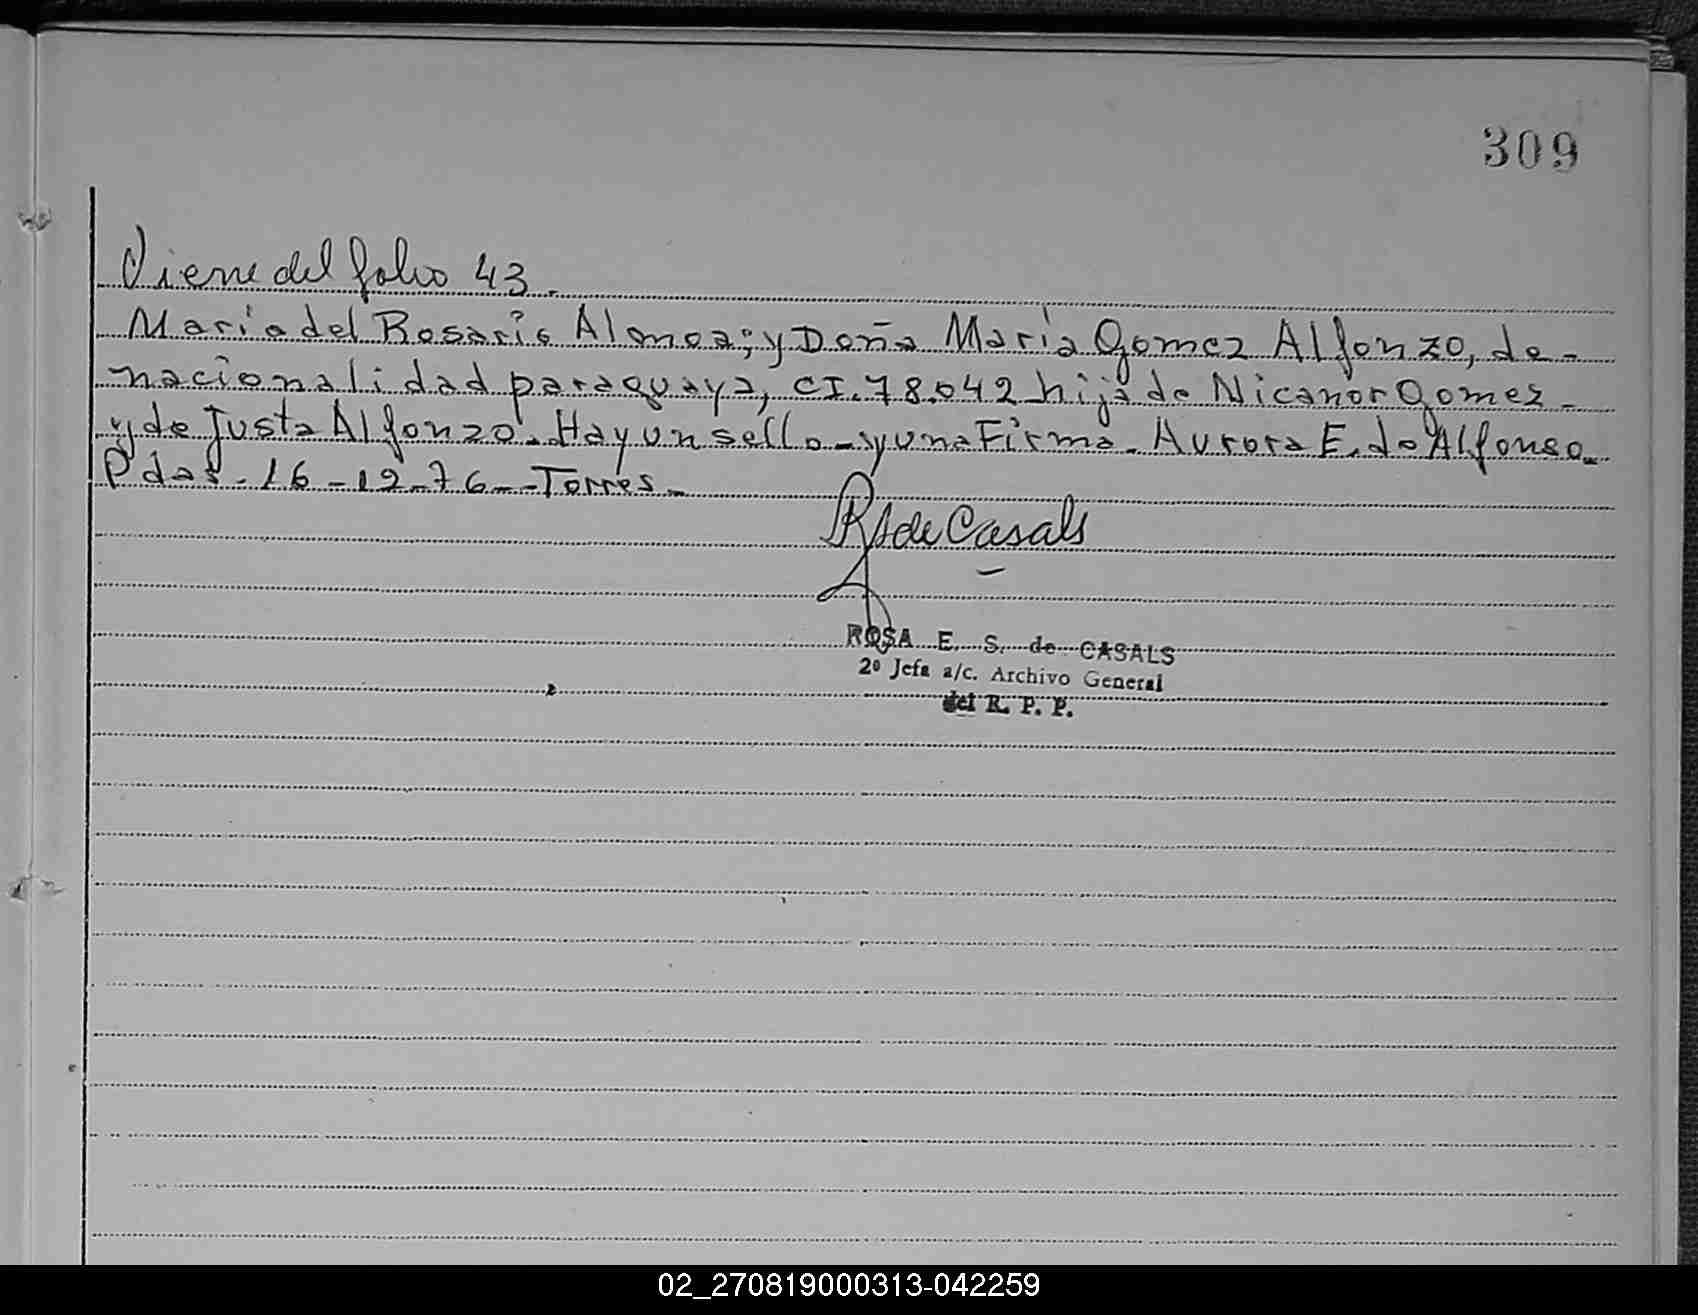 309
Viene del folio 43.
Maria del Rosario Almoa; y Doña María Gomez Alfonzo, de-
nacionalidad paraguaya, CI.78.042 hija de Nicanor Gomez-
y de Justa Alfonzo.-Hay un sello-y una Firma.-Aurora E. de Alfonso.-
Pdas.-16-12-76.--Torres.-
RS de Casals
ROSA E. S. de CASALS
2º Jefa a/c. Archivo General
del R. P. P.
02_270819000313-042259